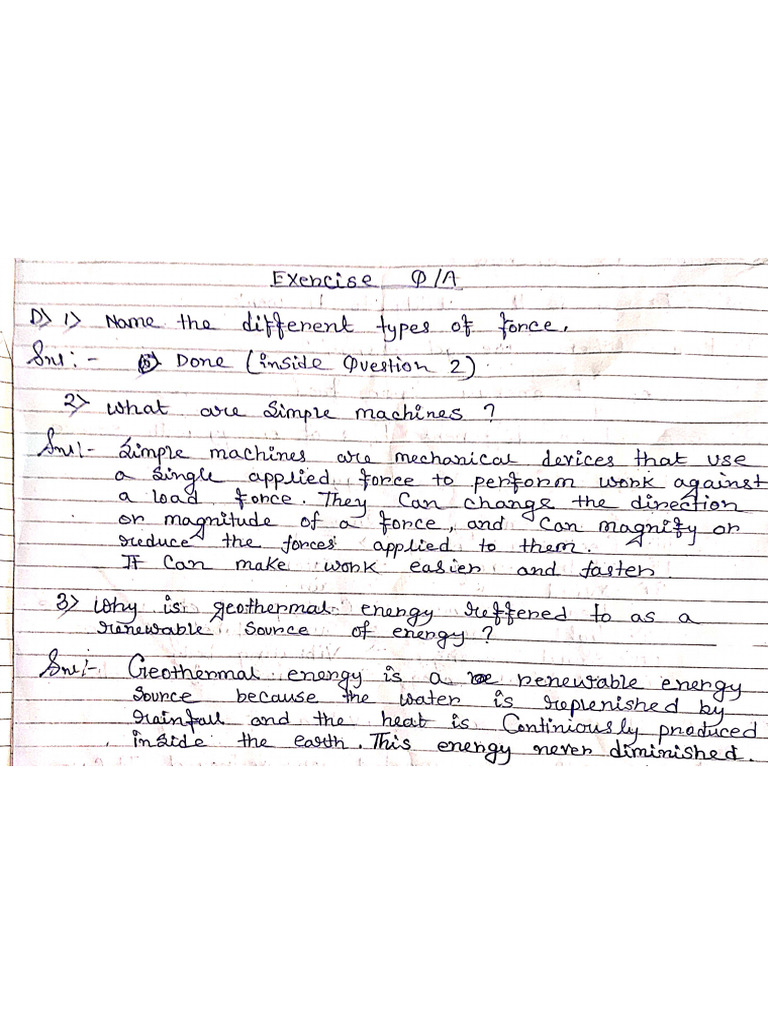 Exercise Q/A
D) 1) Name the different types of force.
Ans:- Done (inside Question 2)
2) What are Simple machines ?
Ans:- Simple machines are mechanical devices that use
a single applied force to perform work against
a load force. They Can change the direction
or magnitude of a force, and Can magnify or
reduce the forces applied to them.
It Can make work easier and faster
3) Why is geothermal energy reffered to as a
renewable source of energy ?
Ans:- Geothermal energy is a renewable energy
source because the water is replenished by
rainfall and the heat is Continiously produced
inside the earth. This energy never diminished.